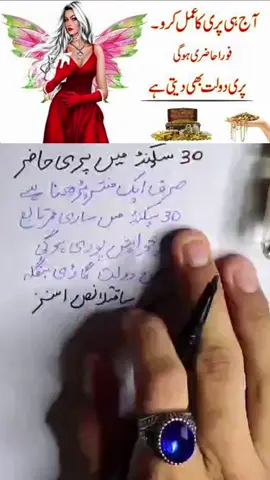 آج ہی پری کا عمل کرو۔
فورا حاضری ہوگی
پری دولت بھی دیتی ہے
30 سکنڈ میں پری حاضر
صرف ایک منتر پڑھنا ہے
30 سکنڈ میں ساری عمر تابع
خواہش پوری ہوگی
دولت گاڑی بنگلہ